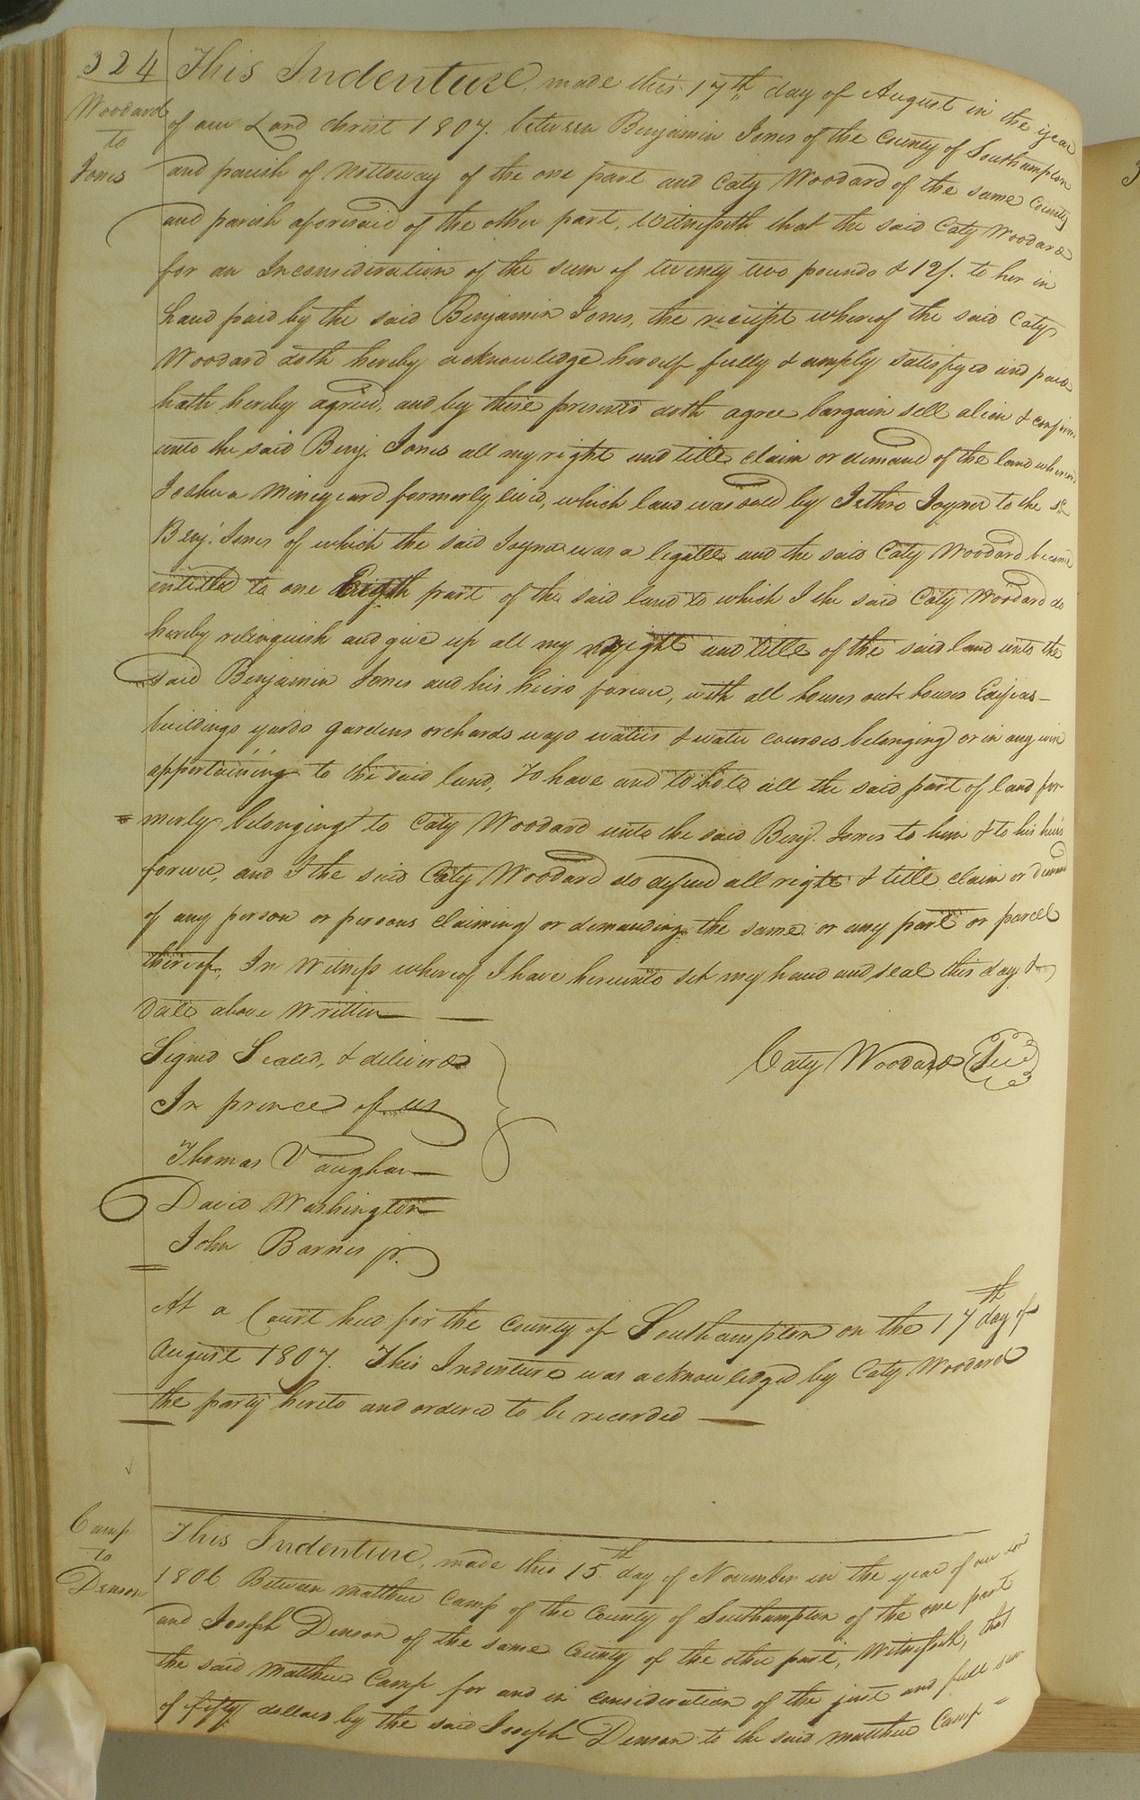 324
Woodard
to
Jones
This Indenture, made this 17th day of August in the year
of our Lord Christ 1807. between Benjamin Jones of the County of Southampton
and parish of Nottoway of the one part and Caty Woodard of the same County
and parish aforesaid of the other part, Witnesseth that the said Caty Woodard
for an Inconsideration of the sum of twenty two pounds & 12/. to her in
hand paid by the said Benjamin Jones, the receipt whereof the said Caty
Woodard doth hereby acknowledge herself fully & amply satisfyed and paid
hath hereby agreed, and by these presents doth agree bargain sell alien & confirm
unto the said Benj. Jones all my right and title claim or demand of the land whereon
Joshua Mineyard formerly lived, which land was sold by Jethro Joyner to the sd.
Benj. Jones of which the said Joyner was a legatee and the said Caty Woodard became
intitled to one Eighth part of the said land to which I the said Caty Woodard do
hereby relinquish and give up all my right and title of the said land unto the
said Benjamin Jones and his heirs forever, with all houses out houses
buildings yards gardens orchards ways waters & water courses belonging or in any wise
appertaining to the said land, To have and to hold all the said part of land for-
= merly belonging to Caty Woodard unto the said Benj. Jones to him & to his heirs
forever, and I the said Caty Woodard do defend all right & title claim or demand
of any person or persons claiming or demanding the same or any part or parcel
thereof. In Witness whereof I have hereunto set my hand and seal this day &
date above written
Signed Sealed, & delivered
In presence of us
Caty Woodard Seal
Thomas Vaughan
David Washington
John Barnes jr.
At a Court held for the County of Southampton on the 17th day of
August 1807. This Indenture was acknowledged by Caty Woodard
the party hereto and ordered to be recorded
Camp
to
Denson
This Indenture, made this 15th day of November in the year of our Lord
1806 Between Matthew Camp of the County of Southampton of the one part
and Joseph Denson of the same County of the other part, Witnesseth, that
the said Matthew Camp for and in consideration of the just and full sum
of fifty dollars by the said Joseph Denson to the said Matthew Camp =